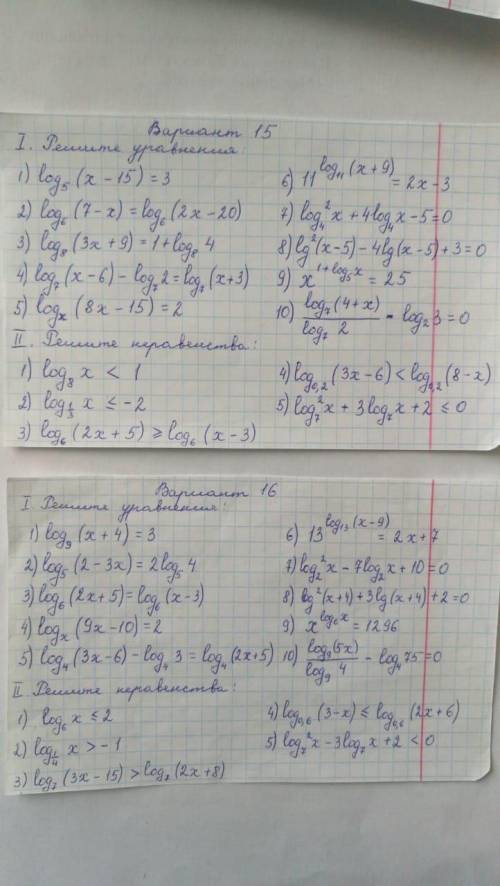 Вариант 15
I. Решите уравнения:
1) log₅(x − 15) = 3
2) log₆(7 − x) = log₆(2x − 20)
3) log₈(3x + 9) = 1 + log₈ 4
4) log₇(x − 6) − log₇ 2 = log₇(x + 3)
5) logₓ(8x − 15) = 2
6) 11^(log₁₁(x + 9)) = 2x − 3
7) log₄² x + 4log₄ x − 5 = 0
8) lg²(x − 5) − 4lg(x − 5) + 3 = 0
9) x^(1 + log₅ x) = 25
10) log₇(4 + x) / log₇ 2 − log₂ 3 = 0
II. Решите неравенства:
1) log₈ x < 1
2) log_(1/3) x ≤ −2
3) log₆(2x + 5) ≥ log₆(x − 3)
4) log₀,₂(3x − 6) < log₀,₂(8 − x)
5) log₇² x + 3log₇ x + 2 ≤ 0
Вариант 16
I. Решите уравнения:
1) log₉(x + 4) = 3
2) log₅(2 − 3x) = 2log₅ 4
3) log₆(2x + 5) = log₆(x − 3)
4) logₓ(9x − 10) = 2
5) log₄(3x − 6) − log₄ 3 = log₄(2x + 5)
6) 13^(log₁₃(x − 9)) = 2x + 7
7) log₂² x − 7log₂ x + 10 = 0
8) lg²(x + 4) + 3lg(x + 4) + 2 = 0
9) x^(log₆ x) = 1296
10) log₉(5x) / log₉ 4 − log₄ 75 = 0
II. Решите неравенства:
1) log₆ x ≤ 2
2) log_(1/4) x > −1
3) log₇(3x − 15) > log₇(2x + 8)
4) log₀,₆(3 − x) ≤ log₀,₆(2x + 6)
5) log₇² x − 3log₇ x + 2 < 0